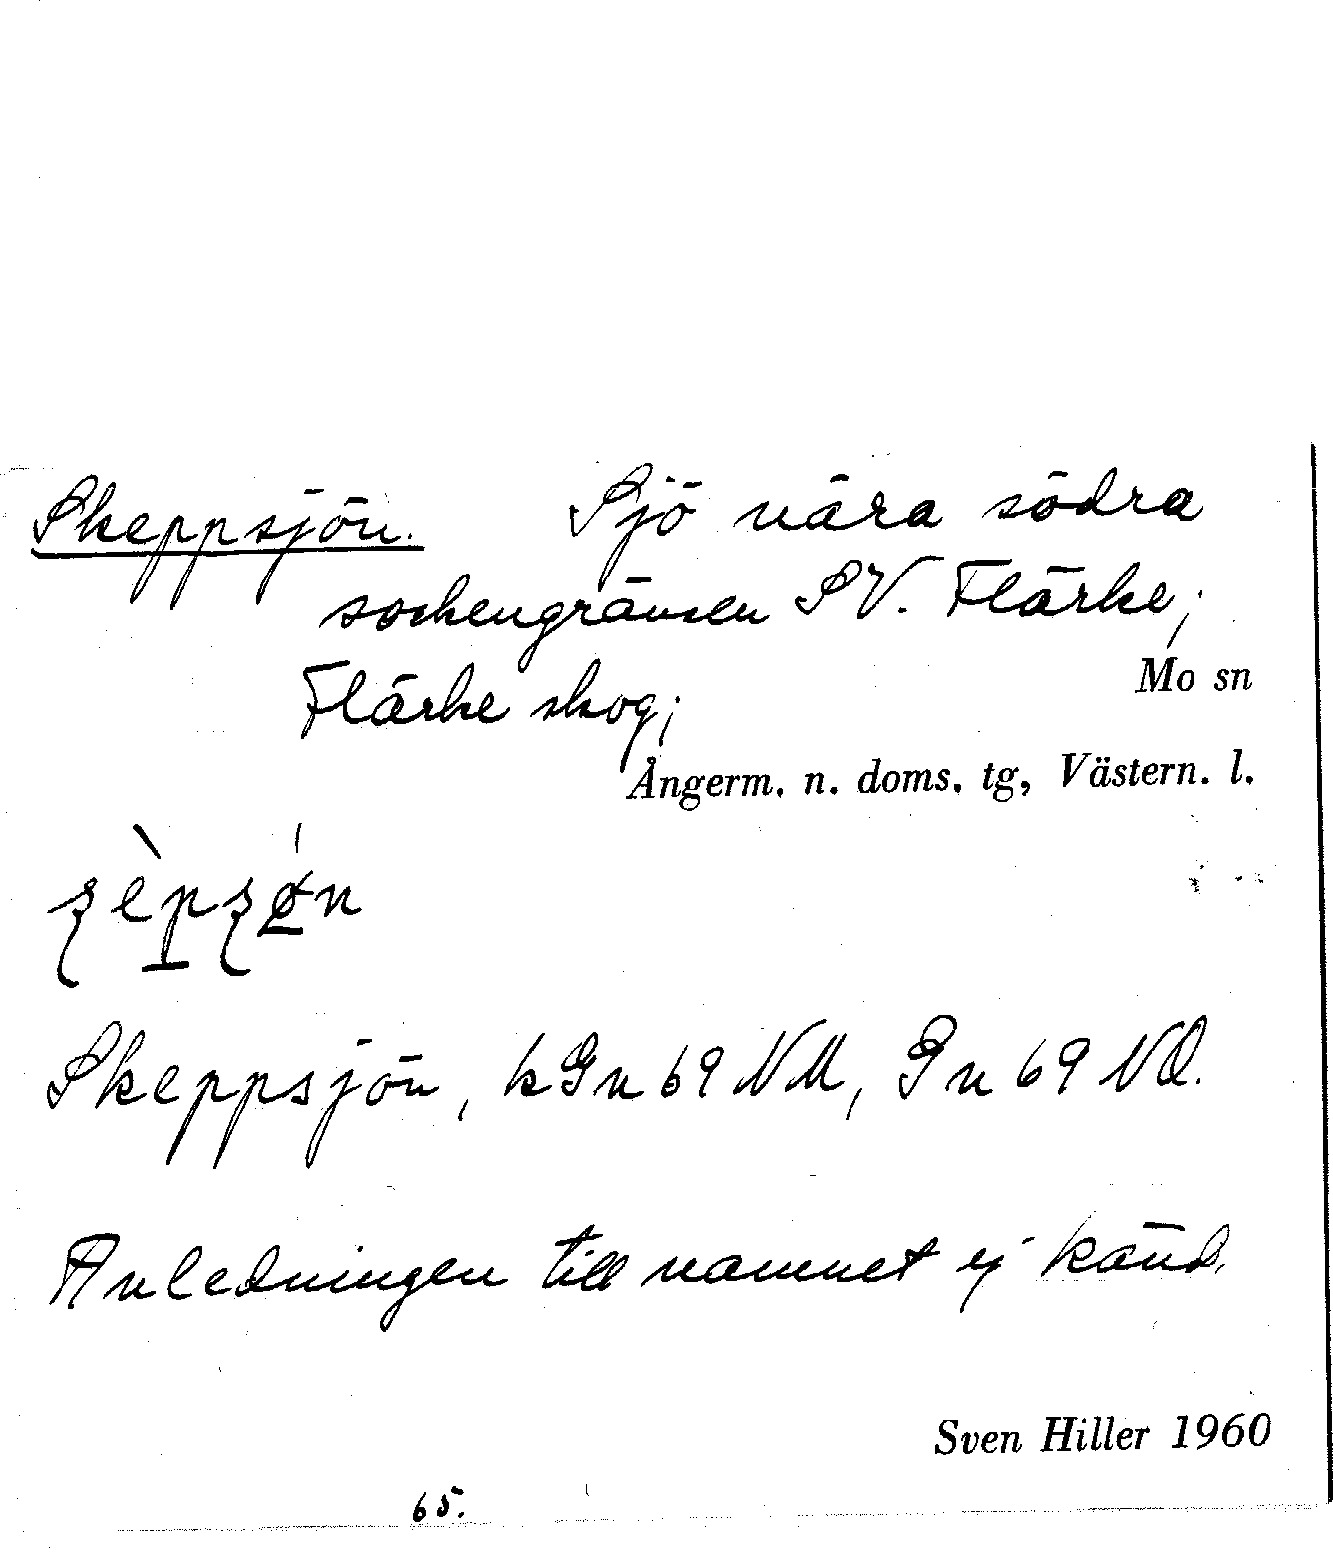 Skeppsjön. Sjö nära södra
sockengränsen SV. Flärke;
Mo sn
Flärke skog;
Ångerm. n. doms. tg, Västern. l.
Skeppsjön, kGn 69 NM, Gn 69 NO.
Anledningen till namnet ej känd.
Sven Hiller 1960
65.